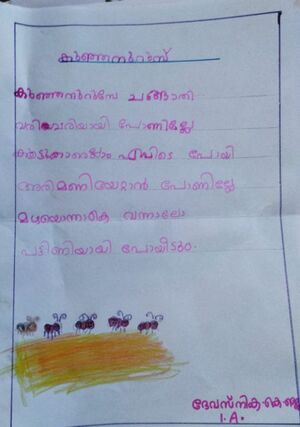 കുഞ്ഞനുറുമ്പ്
കുഞ്ഞനുറുമ്പേ ചങ്ങാതി
വരിവരിയായി പോണില്ലേ
കൂട്ടുകാരെല്ലാം എവിടെ പോയി
അരിമണിയേറ്റാൻ പോണില്ലേ
മഴയൊന്നാകെ വന്നാലോ
പട്ടിണിയായി പോയീടും.
ദേവസ്നിക.കെ.
1. A.